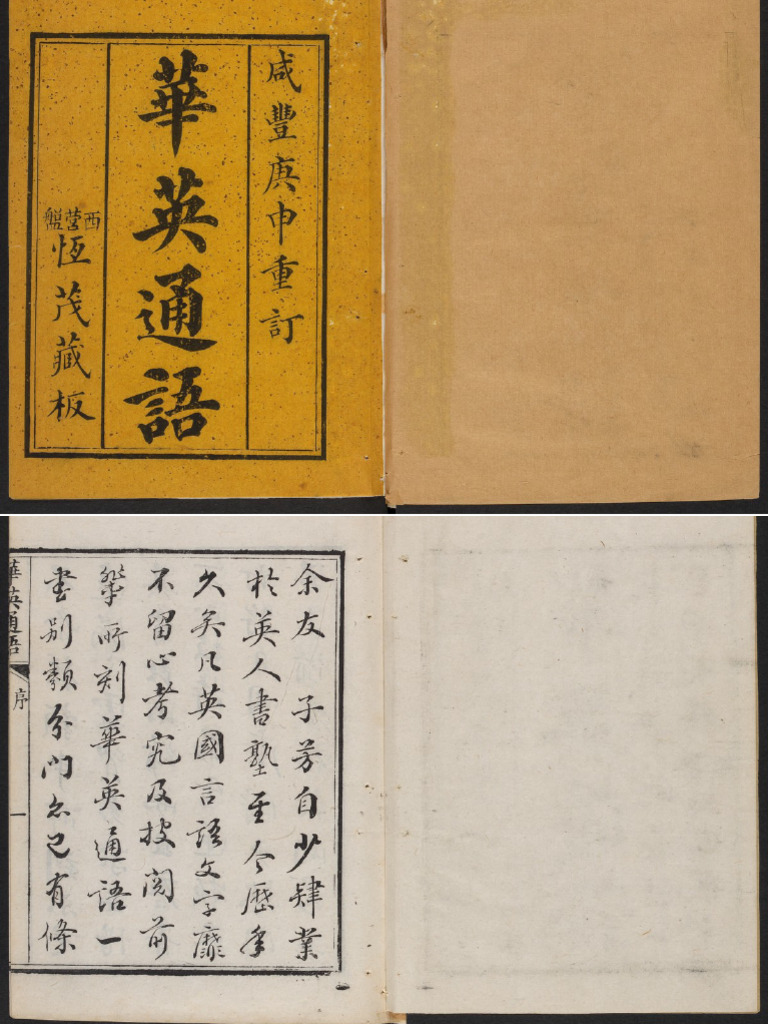 咸豐庚申重訂
華英通語
西营盤
恆茂藏板
余友　子芳自少肄業
於英人書塾至今歷年
久矣凡英國言語文字靡
不留心考究及披閱前
輩所刻華英通語一
書別類分門亦已有條
華英通語
序
一